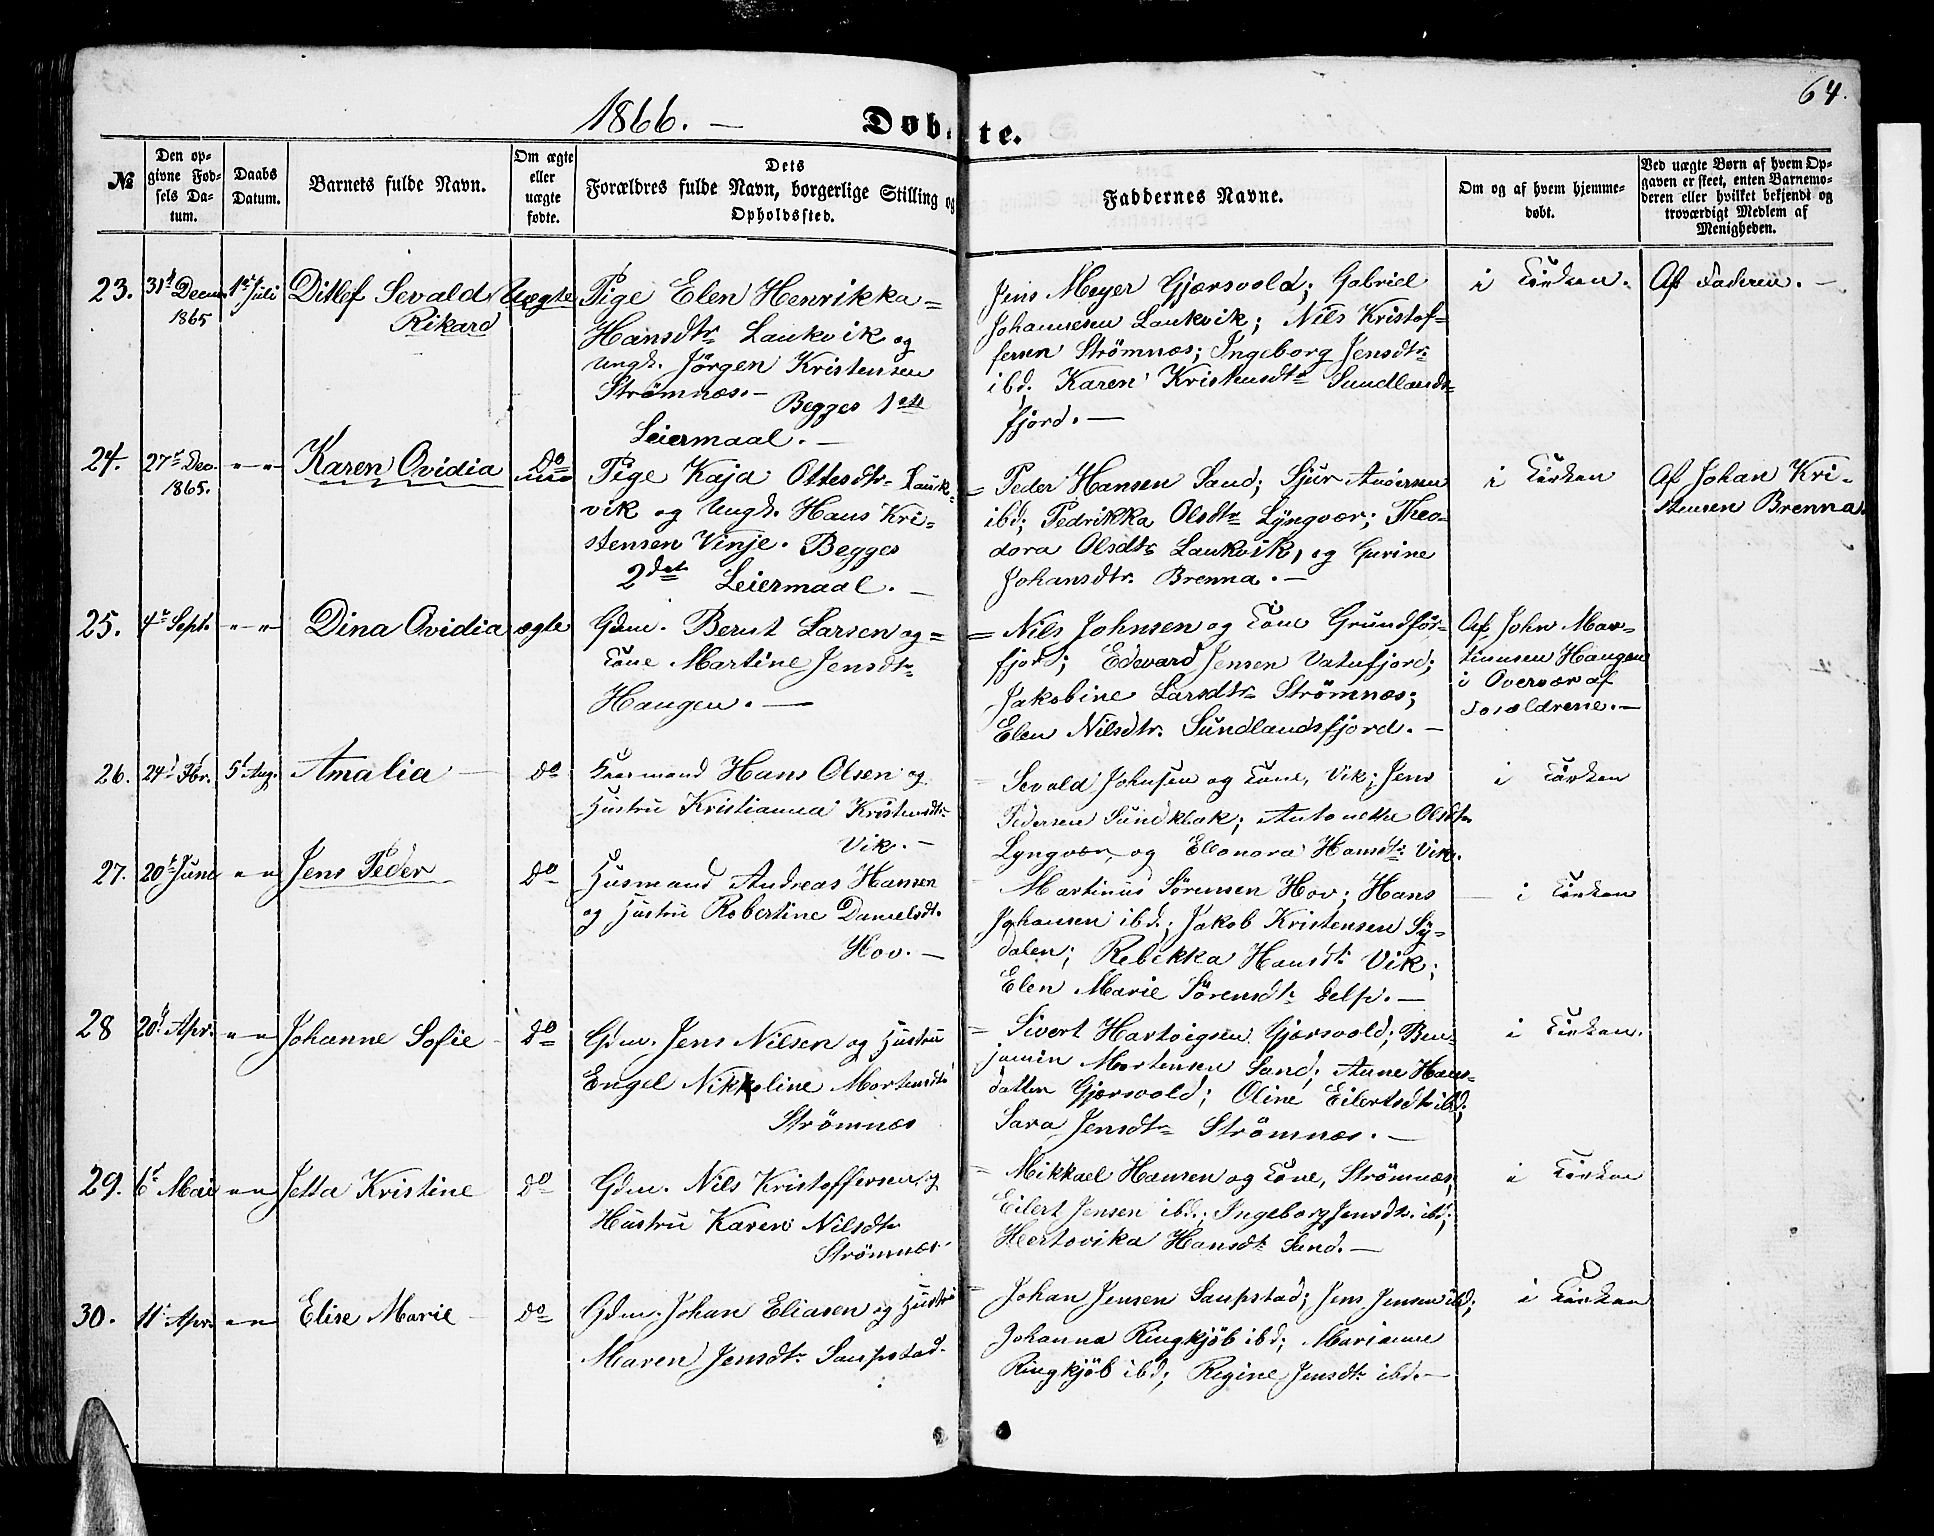 64.
1866. —
Døbte.
No
Den opgivne Fødsels Datum.
Daabs Datum.
Barnets fulde Navn.
Om ægte eller uægte fødte.
Dets Forældres fulde Navn, borgerlige Stilling og Opholdssted.
Faddernes Navne.
Om og af hvem hjemmedøbt.
Ved uægte Børn af hvem Opgaven er skeet, enten Barnemoderen eller hvilket bekjendt og troværdigt Medlem af Menigheden.
23. 31t Decm. 1865
1ste Juli
Ditlef Sevald
Rikard
Uægte
Pige Elen Henrikka =
Hansdtr Laukvik og
Ungk. Jörgen Kristensen
Strömnæs. — Begges 1ste
Leiermaal. —
Jens Meyer Gjærsvold; Gabriel
Johannesen Laukvik; Nils Kristof-
fersen Strömnæs; Ingeborg Jensdtr
ibd. Karen Kristensdtr Sundlands-
fjord. —
i Kirken.
Af Faderen. —
24. 27de Dec. 1865.
" "
Karen Ovidia
Do
Pige Kaja Ottesdtr Lauk-
vik og Ungk. Hans Kri-
stensen Vinje. Begges
2det Leiermaal. —
= Peder Hansen Sand; Sjur Andersen
ibd; Pedrikka Olsdtr Lyngvær; Theo-
dora Olsdtr Laukvik, og Gurine
Johansdtr. Brenna. —
i Kirken
Af Johan Kri-
stensen Brenna.
25. 4de Sept.
" "
Dina Ovidia
ægte
Gdm. Bernt Larsen og =
Kone Martine Jensdtr
Haugen. —
= Nils Johnsen og Kone Grundför-
fjord; Edevard Jensen Vatnfjord;
Jakobine Larsdtr Strömnæs;
Elen Nilsdtr. Sundlandsfjord. —
Af John Mar-
tinusen Haugen
i Overvær af
Forældrene. —
26. 24d Fbr.
5t Aug.
Amalia —
Do
Huusmand Hans Olsen og
Hustru Kristianna Kristensdtr
Vik. —
— Sevald Johnsen og Kone, Vik; Jens
Pedersen Sundklak; Antonette Olsdtr
Lyngvær, og Eleonora Hansdtr Vik.
i Kirken
27. 20t Juni
" "
Jens Peder
Do
Husmand Andreas Hansen
og Hustru Robertine Danielsdt.
Hov. —
— Martinus Sörensen Hov; Hans
Johansen ibd.; Jakob Kristensen Sy-
dalen; Rebekka Hansdtr Vik;
Elen Marie Sörensdtr Delp. —
— i Kirken
28 20d Apr.
" "
Johanne Sofie
Do
Gdm. Jens Nilsen og Hustru
Engel Nikkoline Mortensdtr
Strömnæs
— Sivert Hartvigsen Gjærsvold; Ben-
jamin Mortensen Sand; Anne Hans-
datter Gjærsvold; Oline Eilertsdtr ibd;
Sara Jensdtr Strömnæs. —
i Kirken.
29. 6t Mai
" "
Jetta Kristine
Do
Gdm. Nils Kristoffersen og
Hustru Karen Nilsdtr
Strömnæs
— Mikkael Hansen og Kone, Strömnæs;
Eilert Jensen ibd; Ingeborg Jensdtr. ibd;
Hertovika Hansdtr Sand. —
i Kirken
30. 11t Apr.
" "
Elise Marie —
Do
Gdm. Johan Eliasen og Hustru
Maren Jensdtr Saupstad.
= Johan Jensen Saupstad; Jens Jensen ibd;
Johanna Ringkjöb ibd; Marianne
Ringkjöb ibd; Regine Jensdtr ibd. —
i Kirken